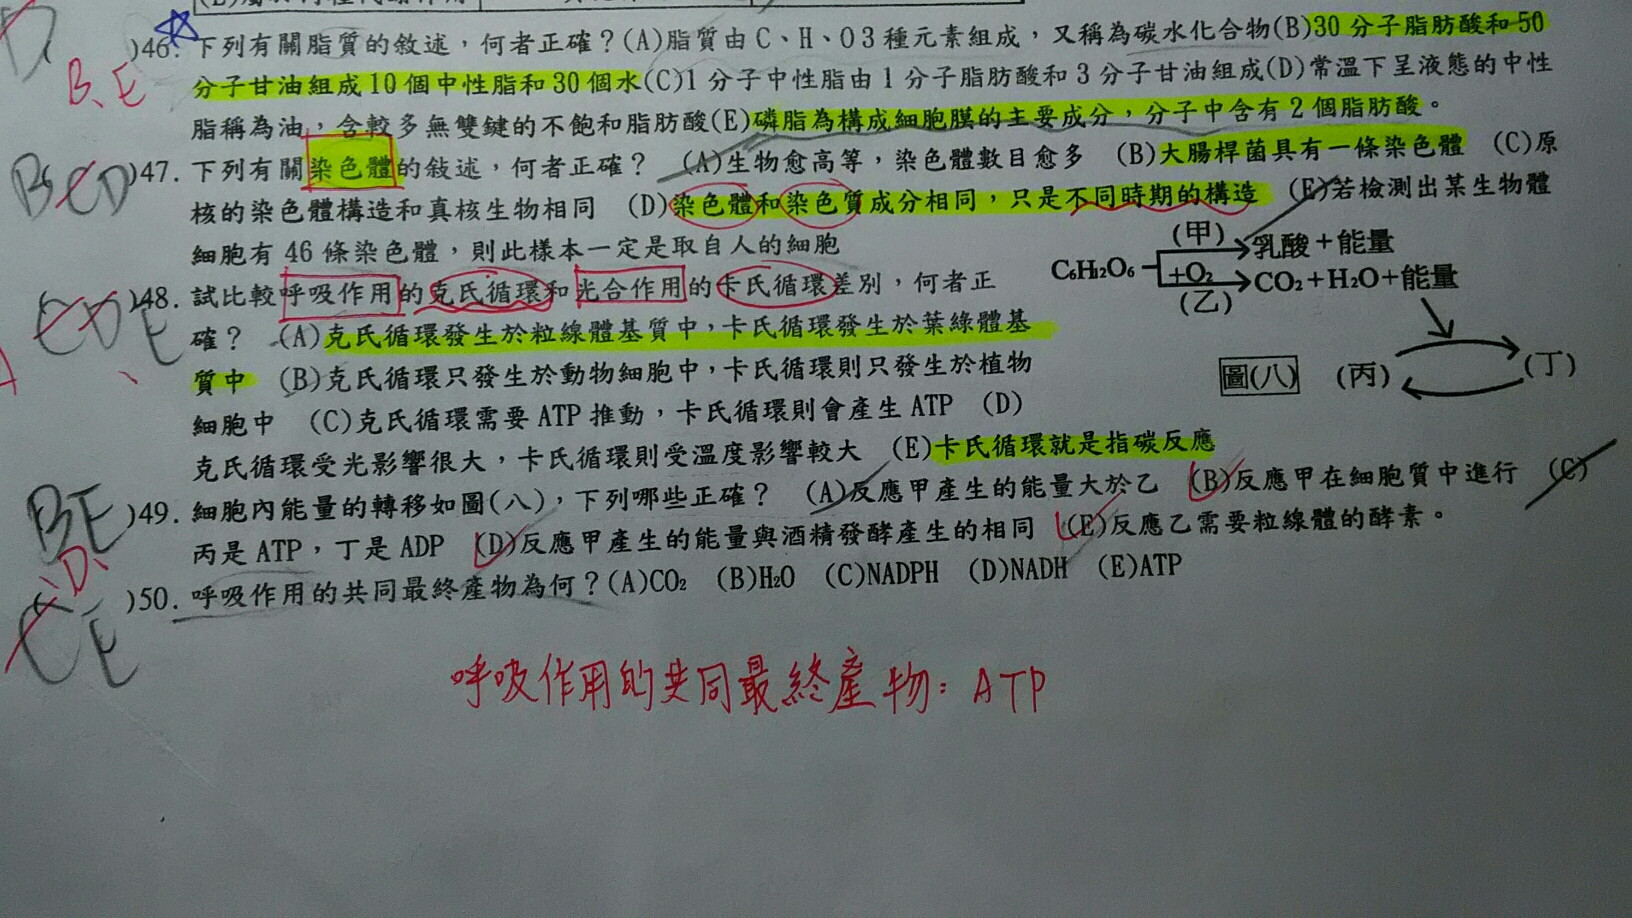 )46. 下列有關脂質的敘述，何者正確？(A)脂質由C、H、O 3種元素組成，又稱為碳水化合物(B)30分子脂肪酸和50
分子甘油組成10個中性脂和30個水(C)1分子中性脂由1分子脂肪酸和3分子甘油組成(D)常溫下呈液態的中性
脂稱為油，含較多無雙鍵的不飽和脂肪酸(E)磷脂為構成細胞膜的主要成分，分子中含有2個脂肪酸。
B、E
)47. 下列有關染色體的敘述，何者正確？ (A)生物愈高等，染色體數目愈多 (B)大腸桿菌具有一條染色體 (C)原
核的染色體構造和真核生物相同 (D)染色體和染色質成分相同，只是不同時期的構造 (E)若檢測出某生物體
細胞有46條染色體，則此樣本一定是取自人的細胞
BCD
)48. 試比較呼吸作用的克氏循環和光合作用的卡氏循環差別，何者正
確？ (A)克氏循環發生於粒線體基質中，卡氏循環發生於葉綠體基
質中 (B)克氏循環只發生於動物細胞中，卡氏循環則只發生於植物
細胞中 (C)克氏循環需要ATP推動，卡氏循環則會產生ATP (D)
克氏循環受光影響很大，卡氏循環則受溫度影響較大 (E)卡氏循環就是指碳反應
CDE
(甲)
乳酸＋能量
C₆H₁₂O₆
+O₂
CO₂＋H₂O＋能量
(乙)
圖(八)
(丙)
(丁)
)49. 細胞內能量的轉移如圖(八)，下列哪些正確？ (A)反應甲產生的能量大於乙 (B)反應甲在細胞質中進行 (C)
丙是ATP，丁是ADP (D)反應甲產生的能量與酒精發酵產生的相同 (E)反應乙需要粒線體的酵素。
BE
、D、
)50. 呼吸作用的共同最終產物為何？(A)CO₂ (B)H₂O (C)NADPH (D)NADH (E)ATP
CE
呼吸作用的共同最終產物：ATP